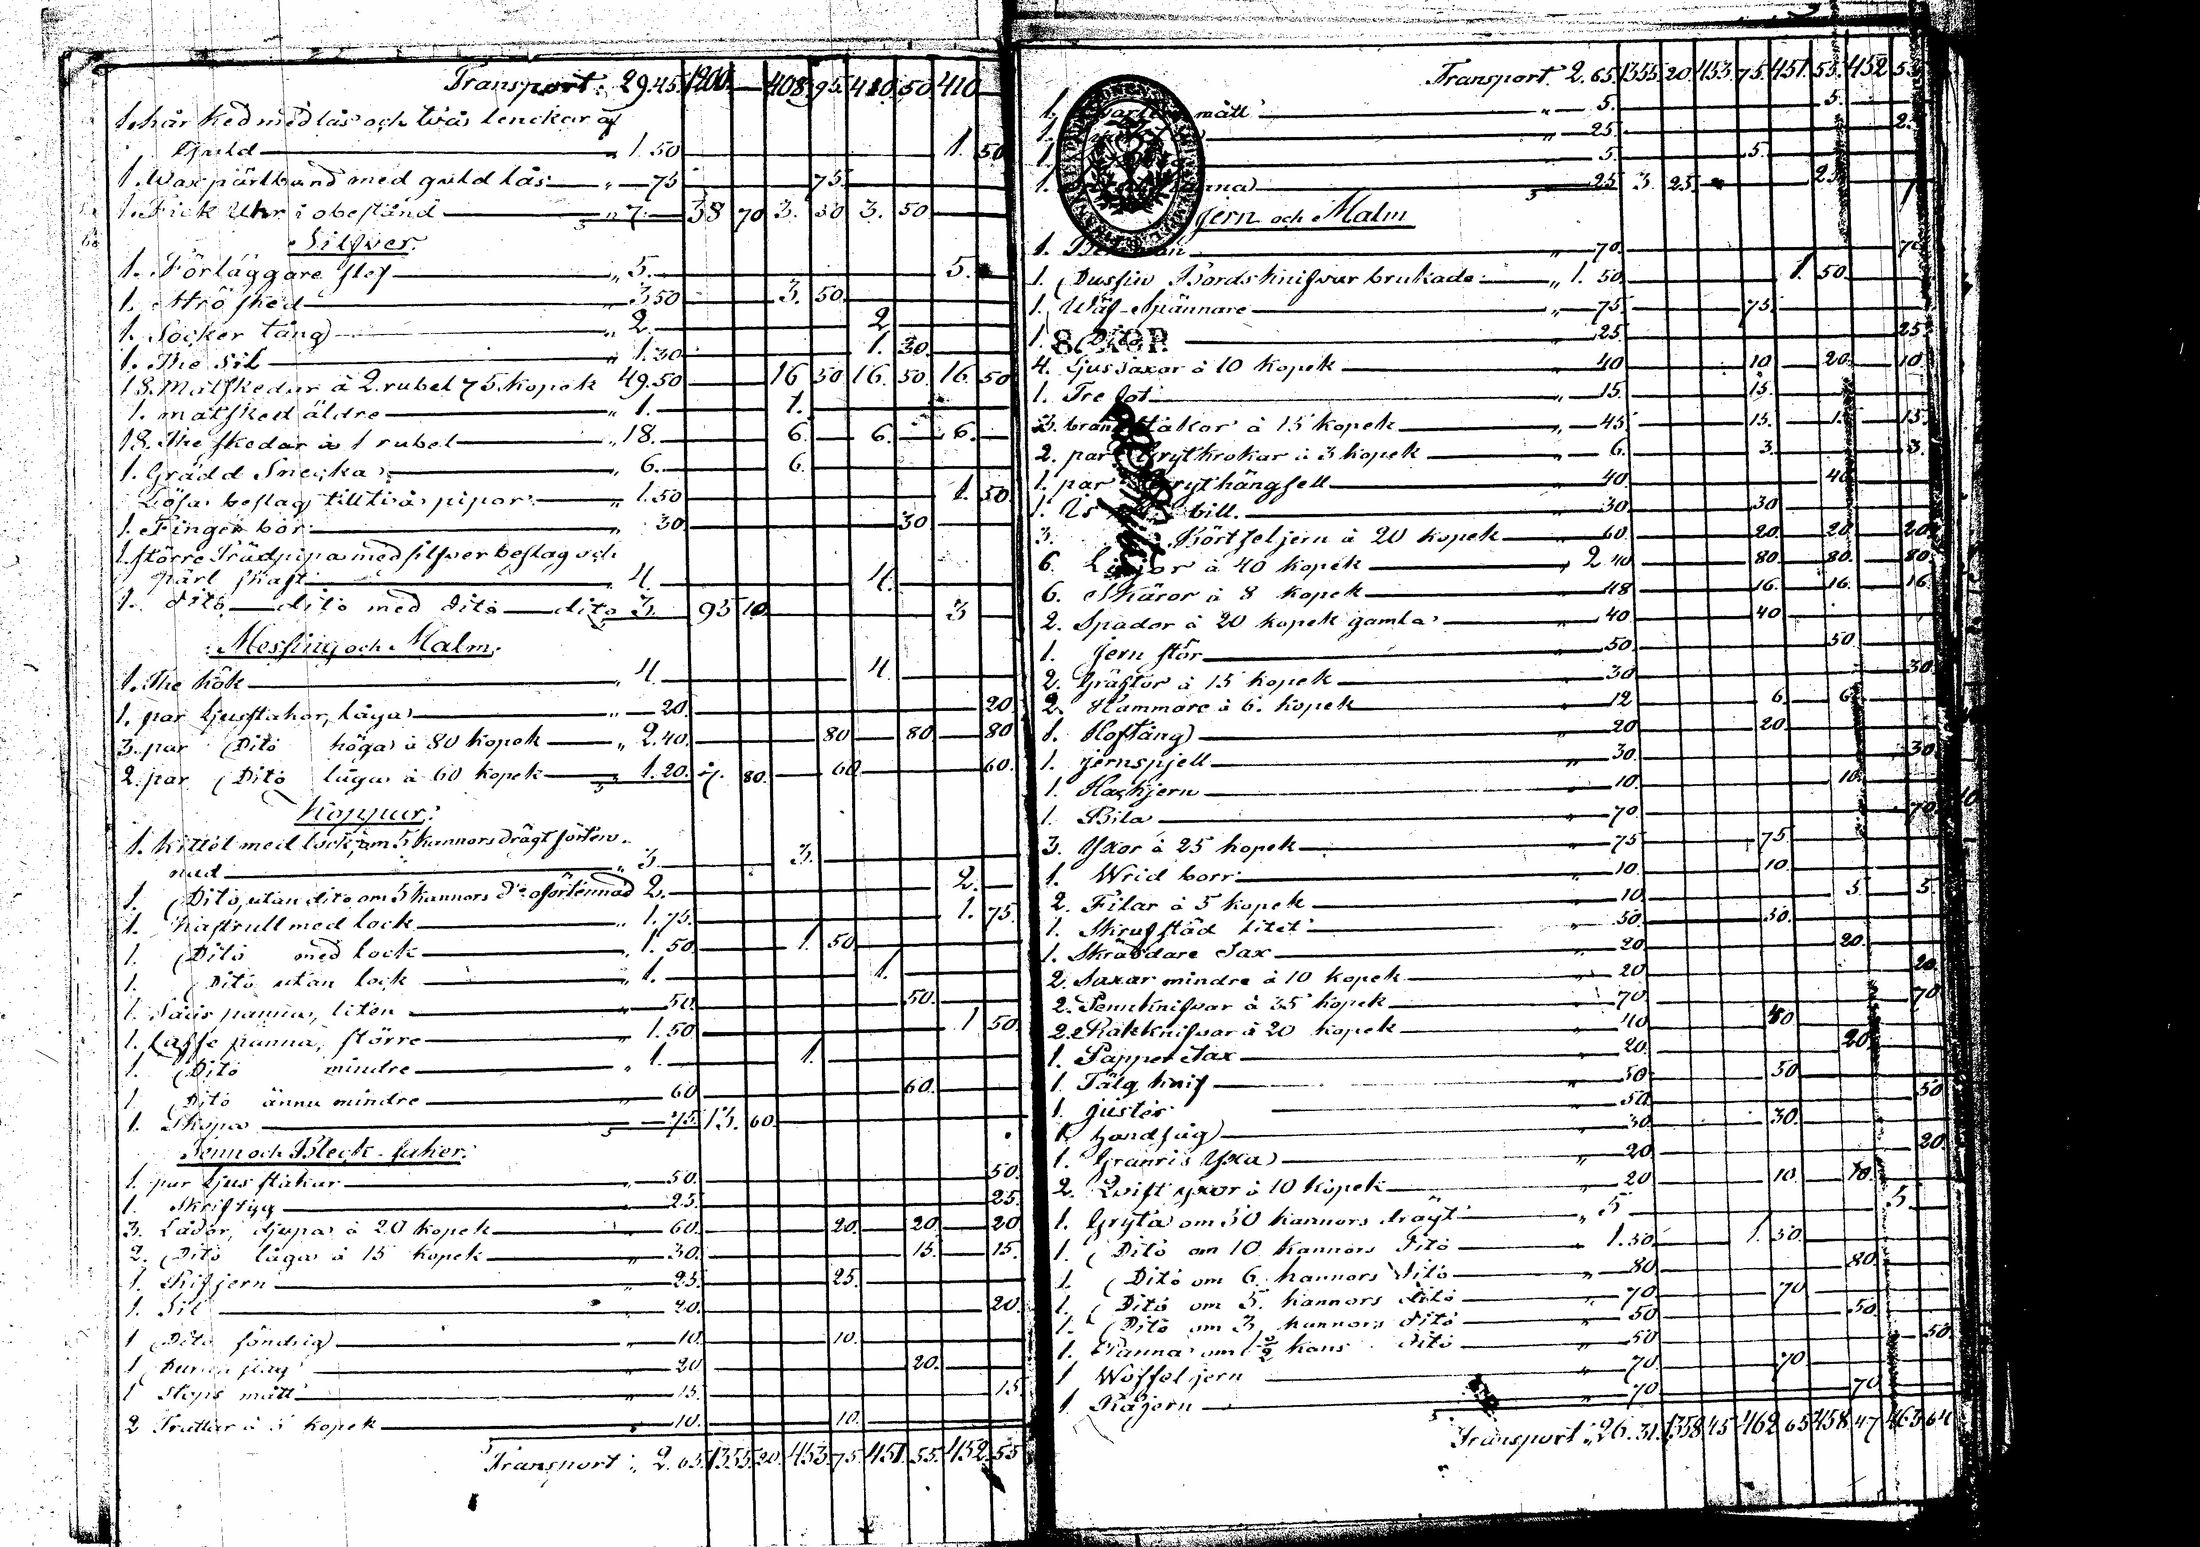 Transport: 29.45. 1200. — 408. 95. 410. 50. 410 —
1. hår ked med lås och två lenckar af
Guld „ 1.50 1. 50
1. Wax pärlband med guld lås „ 75 75.
1. Fick Uhr i obestånd „ 7. 38 70 3. 50 3. 50
Silfver.
1. Förläggare slef „ 5. 5.
1. Strö sked „ 3.50 3. 50.
1. Socker tång „ 2. 2
1. The Sil „ 1.30 1. 30.
18. Matskedar à 2. rubel 75. kopek 49.50 16 50 16. 50. 16. 50
1. matsked äldre „ 1. 1.
18. The skedar à 1 rubel „ 18. 6. 6. 6.
1. Grädd Snecka „ 6. 6.
Lösa beslag till två pipor „ 1.50 1. 50
1. Fingerbor „ 30 30
1. större Trädpipa med silfver beslag och
pärl skaft „ 4. 4.
1. dito dito med dito dito 3. 95 10. 3
Messing och Malm.
1. The kök „ 4 4.
1. par Ljusstakar, låga „ 20. 20.
3. par Dito höga à 80 kopek „ 2.40. 80 80 80
2. par Dito låga à 60 kopek „ 1.20. 7. 80. 60 60.
Koppar:
1. Kittel med lock, om 5 kannors drägt förten-
nad „ 3. 3.
1. Dito, utan dito om 5 kannors do oförtennad 2. 2.
1. Kastrull med lock „ 1.75. 1. 75.
1. Dito med lock „ 1.50 1. 50
1. Dito utan lock „ 1. 1.
1. Såås panna, liten „ 50. 50.
1. Caffe panna, större „ 1.50 1 50.
1. Dito mindre „ 1. 1.
1. Dito ännu mindre „ 60 60.
1. Skopa 75. 13. 60.
Tenn och Bleck-saker:
1. par Ljusstakar „ 50. 50.
1. Skriftyg „ 25. 25.
3. Lådor, djupa à 20 kopek „ 60. 20. 20. 20
2. Dito låga à 15 kopek „ 30. 15. 15.
1. Rifjern „ 25. 25.
1. Sil „ 20. 20.
1 Dito söndrig „ 10. 10.
1 20 20.
1 Stops mått „ 15. 15
2 Trattar à 5 kopek „ 10. 10.
Transport: 2.65. 1355. 20. 453. 75. 451. 55. 452. 55
Transport: 2.65. 1355. 20. 453. 75. 451. 55. 452 55
1. mått „ 5. 5.
1. „ 25. 2
1. 5. 5.
1. 25 3. 25. 25
Jern och Malm
1. „ 70. 70
1. Dussin Bordsknifvar brukade „ 1. 50. 1. 50.
1. Wäf-Spännare „ 75. 75.
8. KOP.
1. Dito 25. 25
4. Ljussaxar à 10 kopek „ 40 10 20. 10.
1. Tre fot „ 15. 15.
3. brandstakar à 15 kopek „ 45. 15. 15. 15.
2. par Grytkrokar à 3 kopek „ 6. 3. 3.
1. par Grythängsell „ 40. 40
1. bill. „ 30. 30
3. jern à 20 kopek „ 60. 20. 20. 20.
6. Liar à 40 kopek „ 2 40. 80 80. 80.
6. Skäror à 8 kopek „ 48 16. 16. 16.
2. Spador à 20 kopek gamla „ 40 40
1. Jern stör 50 50
2. Gräftor à 15 kopek „ 30 30.
2. Hammare à 6. kopek „ 12 6. 6
1. Hoftång „ 20 20
1. jernspjell „ 30. 30.
1. Hackjern „ 10. 10.
1. Bila „ 70. 70
3. Yxor à 25 kopek „ 75 75
1. Wrid borr „ 10. 10.
2. Filar à 5 kopek „ 10. 5. 5.
1. Skrufstäd litet „ 50. 50.
1. Skräddare Sax „ 20. 20.
2. Saxar mindre à 10 kopek „ 20 20.
2. Pennknifvar à 35 kopek „ 70. 70
2. Rakknifvar à 20 kopek „ 40 40
1. Papper Sax „ 20. 20
1. Tälg knif „ 50 50
1. 50. 50
1. Handsåg „ 30. 30.
1. Granris Yxa „ 20 20
2. Qvist yxor à 10 kopek „ 20 10. 10.
1. Gryta om 30 kannors drägt „ 5 5
1. Dito om 10 kannors dito „ 1.50. 1. 50.
1. Dito om 6. kannors dito „ 80. 80.
1. Dito om 5. kannors dito „ 70. 70
1. Dito om 3 kannors dito „ 50 50.
1. Panna om kans dito „ 50 50.
1 Wåffel jern „ 70. 70
1. Råjern „ 70 70
Transport: 26.31. 1358. 45 462. 65. 458. 47 463. 64